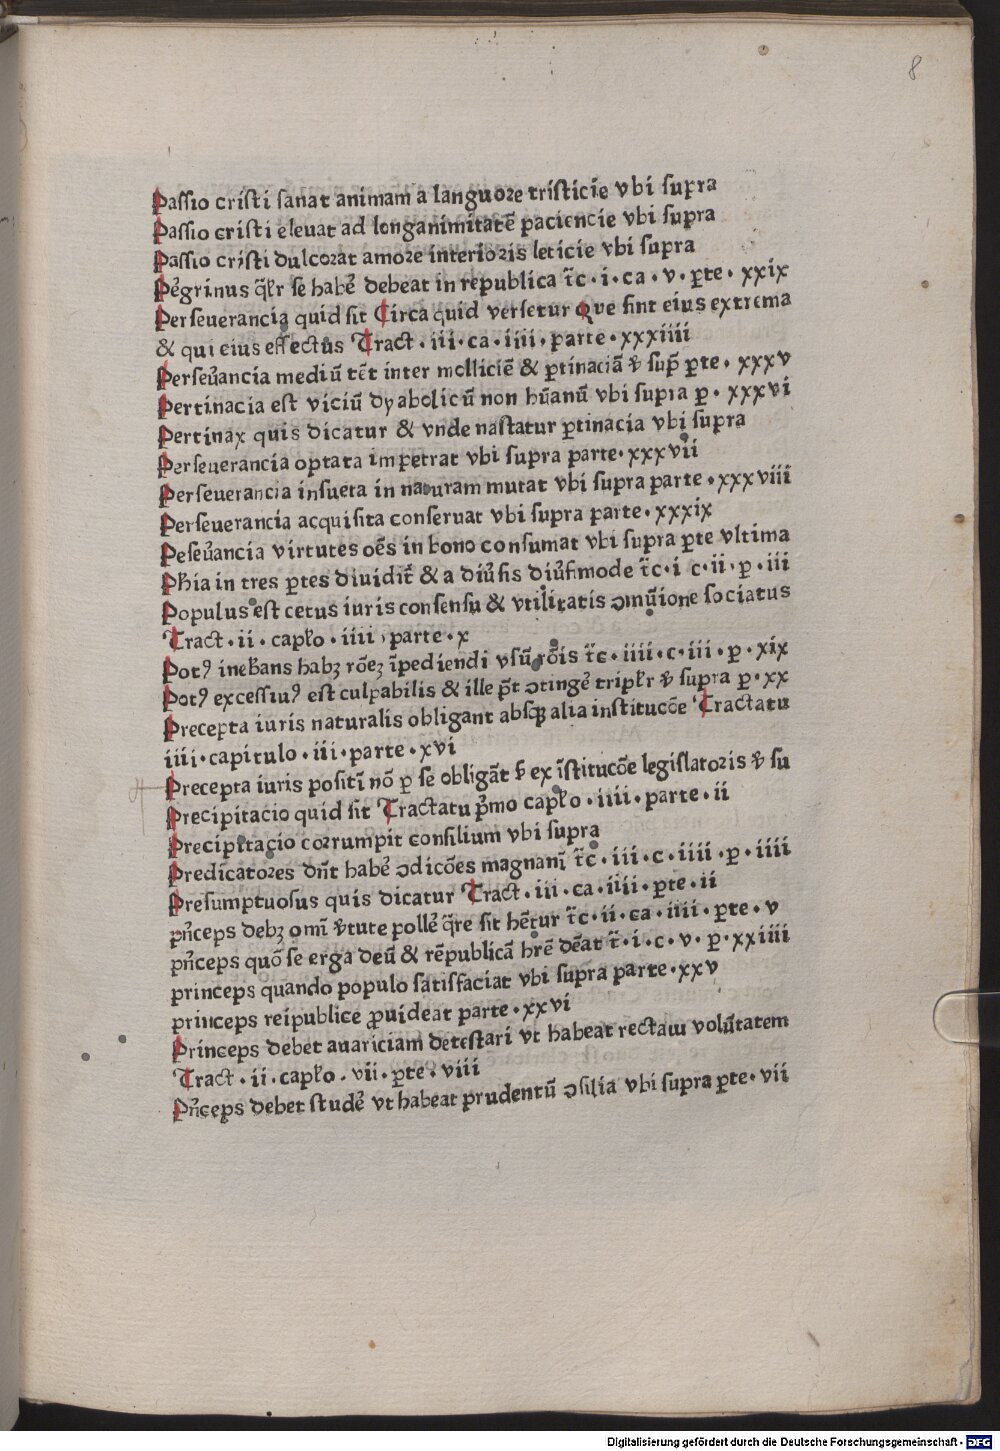 8
Passio cristi sanat animam a languore tristicie vbi supra
Passio cristi eleuat ad longanimitatē paciencie vbi supra
Passio cristi dulcorat amore interioris leticie vbi supra
Pe̓grinus q̄lr̄ se habe̓ debeat in republica tc̄ · i · ca · v · ꝑte · xxix
Perseuerancia quid sit Circa quid versetur Que sint eius extrema
& qui eius effectus Tract · iii · ca · iiii · parte · xxxiiii
Perseu̓ancia mediū tēt inter molliciē & ꝑtinaciā vt̄ sup̄ ꝑte · xxxv
Pertinacia est viciū dyabolicū non hūanū vbi supra ꝑ · xxxvi
Pertinax quis dicatur & vnde nastatur ꝑtinacia vbi supra
Perseuerancia optata impetrat vbi supra parte · xxxvii
Perseuerancia insueta in naturam mutat vbi supra parte · xxxviii
Perseuerancia acquisita conseruat vbi supra parte · xxxix
Peseu̓ancia virtutes oēs in bono consumat vbi supra ꝑte vltima
Ph̄ia in tres ꝑtes diuidit̄ & a diu̓sis diu̓simode tc̄ · i c · ii · ꝑ · iii
Populus est cetus iuris consensu & vtilitatis ꝯmūione sociatus
Tract · ii · capl̄o · iiii · parte · x
Potꝰ inebr̄ans habꝫ rōeꝫ īpediendi vsū rōis tc̄ · iiii · c · iii · ꝑ · xix
Potꝰ excessiuꝰ est culpabilis & ille pt̄ ꝯtinge̓ triplr̄ vt̄ supra ꝑ · xx
Precepta iuris naturalis obligant absqꝫ alia institucōe Tractatu
iiii · capitulo · iii · parte · xvi
Precepta iuris positī nō ꝑ se obligāt sꝫ ex īstitucōe legislatoris vt̄ su
Precipitacio quid sit Tractatu pͥmo capl̄o · iiii · parte · ii
Precipitacio corrumpit consilium vbi supra
Predicatores dn̄t habe̓ ꝯdicōes magnanī tc̄ · iii · c · iiii · ꝑ · iiii
Presumptuosus quis dicatur Tract · iii · ca · iiii · ꝑte · ii
pn̄ceps debꝫ omī v̓tute polle̓ q̄re sit hēt̄ur tc̄ · ii · ca · iiii · ꝑte · v
pn̄ceps quō se erga deū & rēpublicā hr̄e dēat t̄ · i · c · v · ꝑ · xxiiii
princeps quando populo satisfaciat vbi supra parte · xxv
princeps reipublice ꝓuideat parte · xxvi
Princeps debet auariciam detestari vt habeat rectam volūtatem
Tract · ii · capl̄o · vii · ꝑte · viii
Pn̄ceps debet stude̓ vt habeat prudentū ꝯsilia vbi supra ꝑte · vii
Digitalisierung gefördert durch die Deutsche Forschungsgemeinschaft - DFG